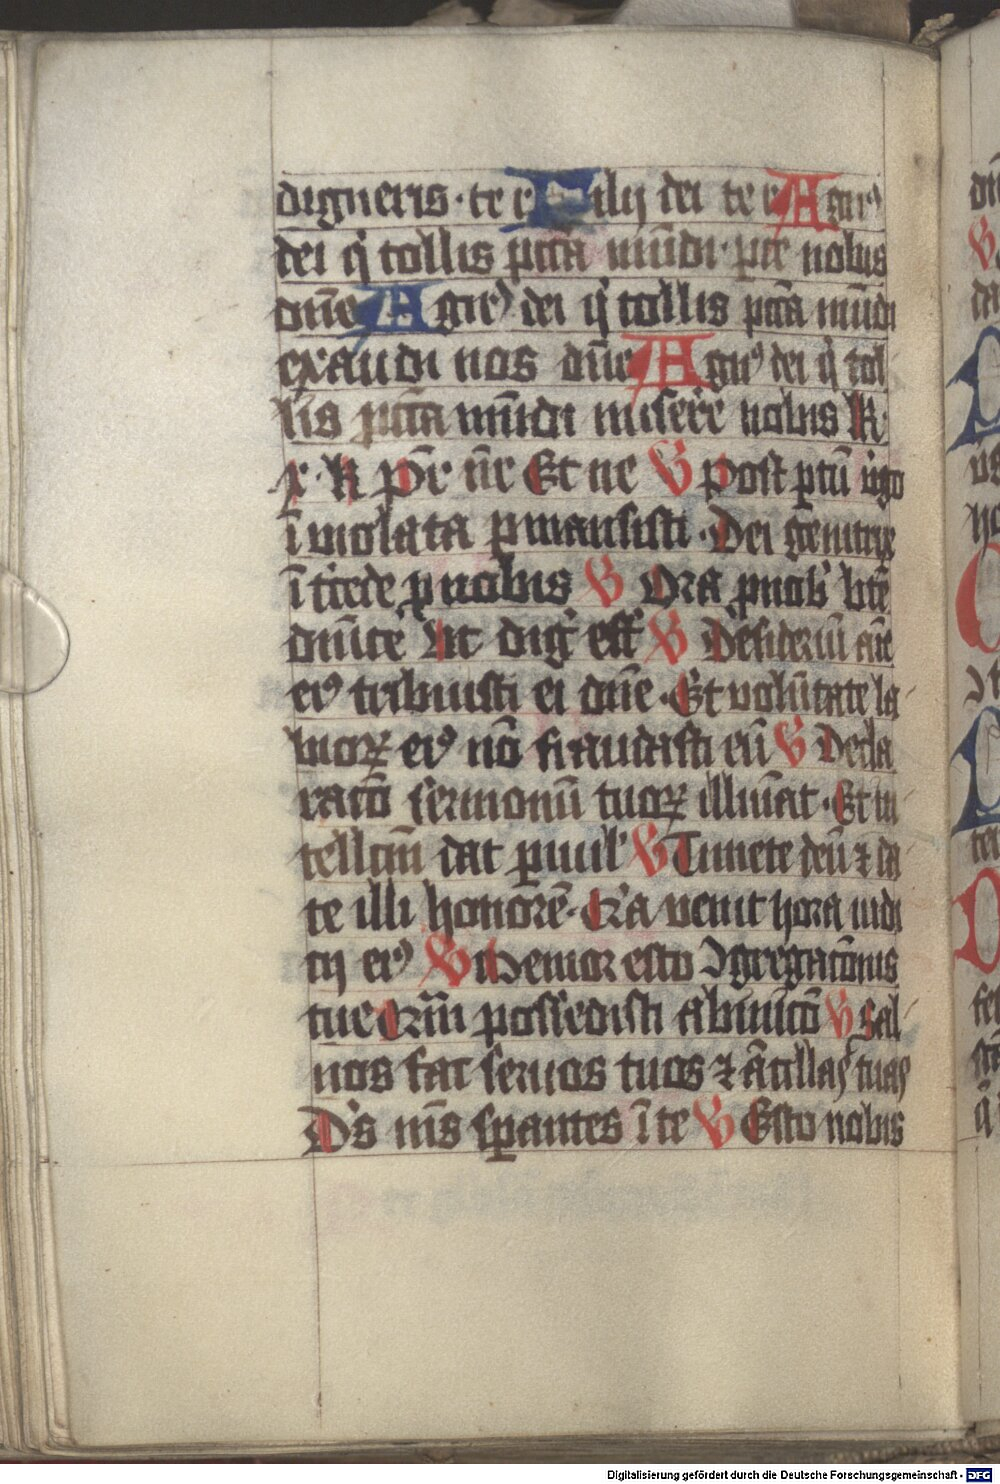 digneris · te r Filij dei te r Agn⁹
dei q̇ tollis pctā mūdi · pce nobis
dn̄e Agn⁹ dei q̇ tollis pctā mūdi
exaudi nos dn̄e Agn⁹ dei q̇ tol
lis pctā mūdi miserē nobis k̄ ·
x · k̄ pr̄ nr̄ Et ne V post ptū v̇go
īuiolata p̱mansisti · Dei genitrix
ītcede p nobis V Ora p nob' btē
dnīce Ut dig' eff V Desideriū aīe
ei⁹ tribuisti ei dn̄e · Et volūtate la
bioꝝ ei⁹ nō fraudasti eū V Decla
racō sermonū tuoꝝ illuīat · Et in
tellcm̄ dat p̱uul' V Timete deū ⁊ da
te illi honorē · Q'a venit hora iudi
cij ei⁹ V Memor esto ꝯgregacōnis
tue Qm̄ possedisti ab inicō V Sal
uos fac seruos tuos ⁊ ācillas tuas
D's m̄s sp̱antes ī te V Esto nobis
Digitalisierung gefördert durch die Deutsche Forschungsgemeinschaft - DFG